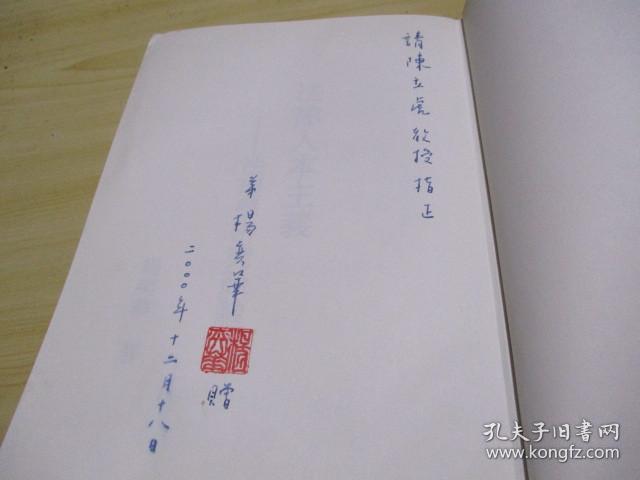 請陳立虎教授指正
弟楊奕華
贈
二〇〇〇年十二月十八日
孔夫子旧书网
www.kongfz.com